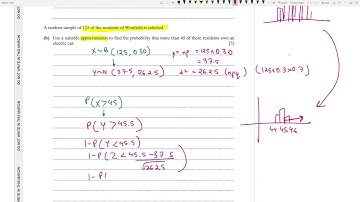 A random sample of 125 of the residents of Winfield is selected.
(b) Use a suitable approximation to find the probability that more than 45 of these residents own an
electric car.
[5]
X~B (125, 0.30)
μ = np = 125×0.30
= 37.5
Y~N (37.5, 26.25)
σ² = 26.25 (npq) (125×0.3×0.7)
P(X>45)
P(Y > 45.5)
1-P(Y<45.5)
1-P(Z < 45.5-37.5
√26.25
1- P(
44 45 46
DO NOT WRITE IN THIS MARGIN
DO NOT WRITE IN THIS MARGIN